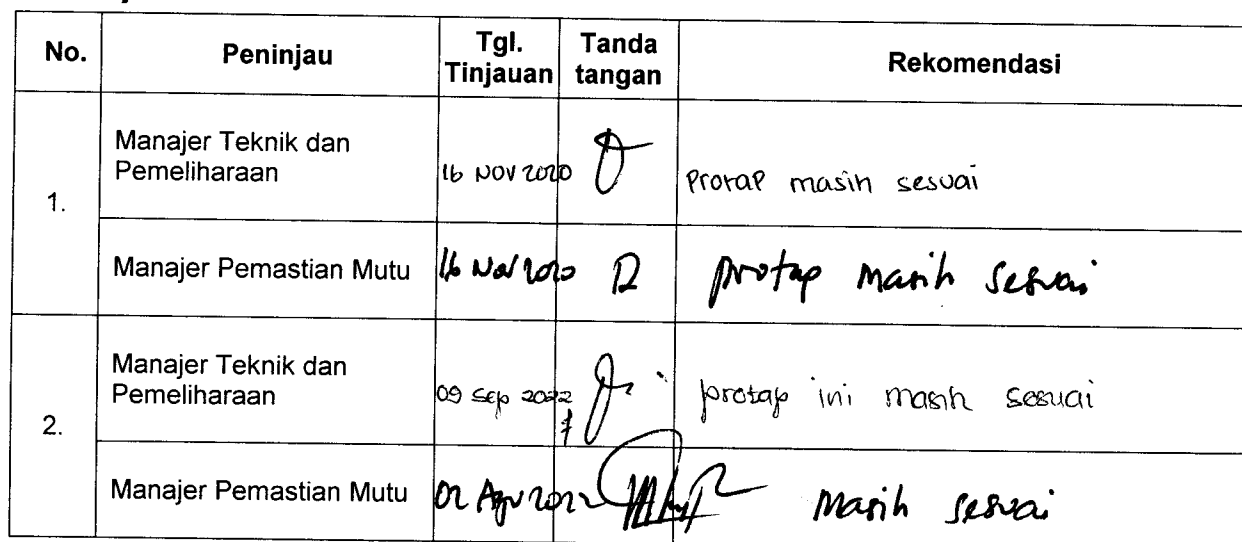 No. Peninjau Tgl. Tinjauan Tanda tangan Rekomendasi
1.
Manajer Teknik dan Pemeliharaan 16 NOV 2020 protap masih sesuai
Manajer Pemastian Mutu 16 Nov 2020 protap masih sesuai
2.
Manajer Teknik dan Pemeliharaan 09 Sep 2022 protap ini masih sesuai
Manajer Pemastian Mutu 02 Agu 2022 Masih sesuai